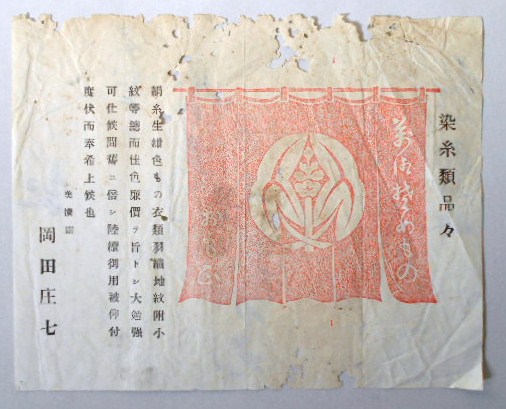 染糸類品々
萬御染もの
絹糸生紬色もの衣類羽織地紋附小
紋等總而仕色廉價ヲ旨トシ大勉强
可仕候間舊ニ倍シ陸續御用被仰付
度伏而奉希上候也
岡田庄七